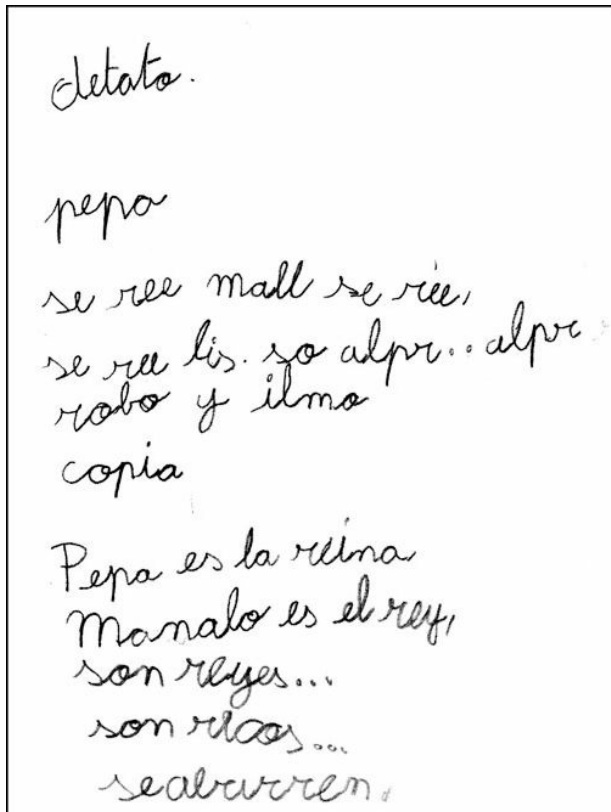 detato.
pepa
se ree mall se rie,
se ree lis. so alpr.. alpr
robo y ilmo
copia
Pepa es la reina,
Manalo es el rey,
son reyes...
son ricos...
seaburren.